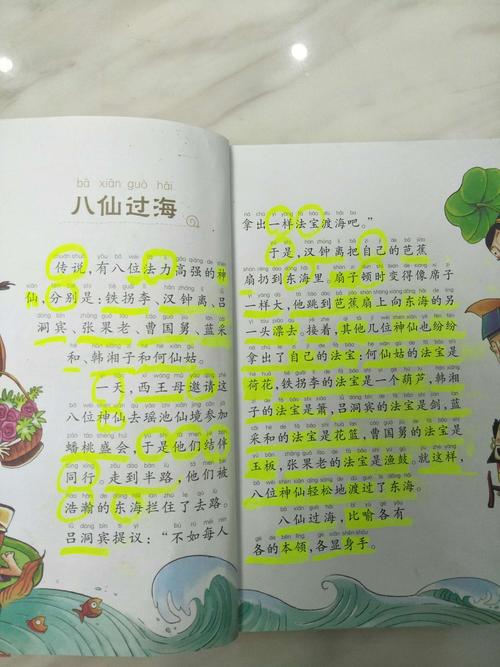 bā xiān guò hǎi
八仙过海
传说，有八位法力高强的神
仙，分别是：铁拐李、汉钟离、吕
洞宾、张果老、曹国舅、蓝采
和、韩湘子和何仙姑。
一天，西王母邀请这
八位神仙去瑶池仙境参加
蟠桃盛会，于是他们结伴
同行。走到半路，他们被
浩瀚的东海拦住了去路。
吕洞宾提议：“不如每人
拿出一样法宝渡海吧。”
于是，汉钟离把自己的芭蕉
扇扔到东海里。扇子顿时变得像席子
一样大，他跳到芭蕉扇上向东海的另
一头漂去。接着，其他几位神仙也纷纷
拿出了自己的法宝：何仙姑的法宝是
荷花，铁拐李的法宝是一个葫芦，韩湘
子的法宝是箫，吕洞宾的法宝是剑。蓝
采和的法宝是花篮，曹国舅的法宝是
玉板，张果老的法宝是渔鼓。就这样，
八位神仙轻松地渡过了东海。
八仙过海，比喻各有
各的本领，各显身手。